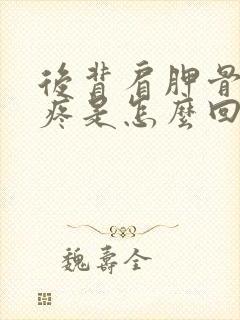 後背肩胛骨
疼是怎麼回
魏壽全